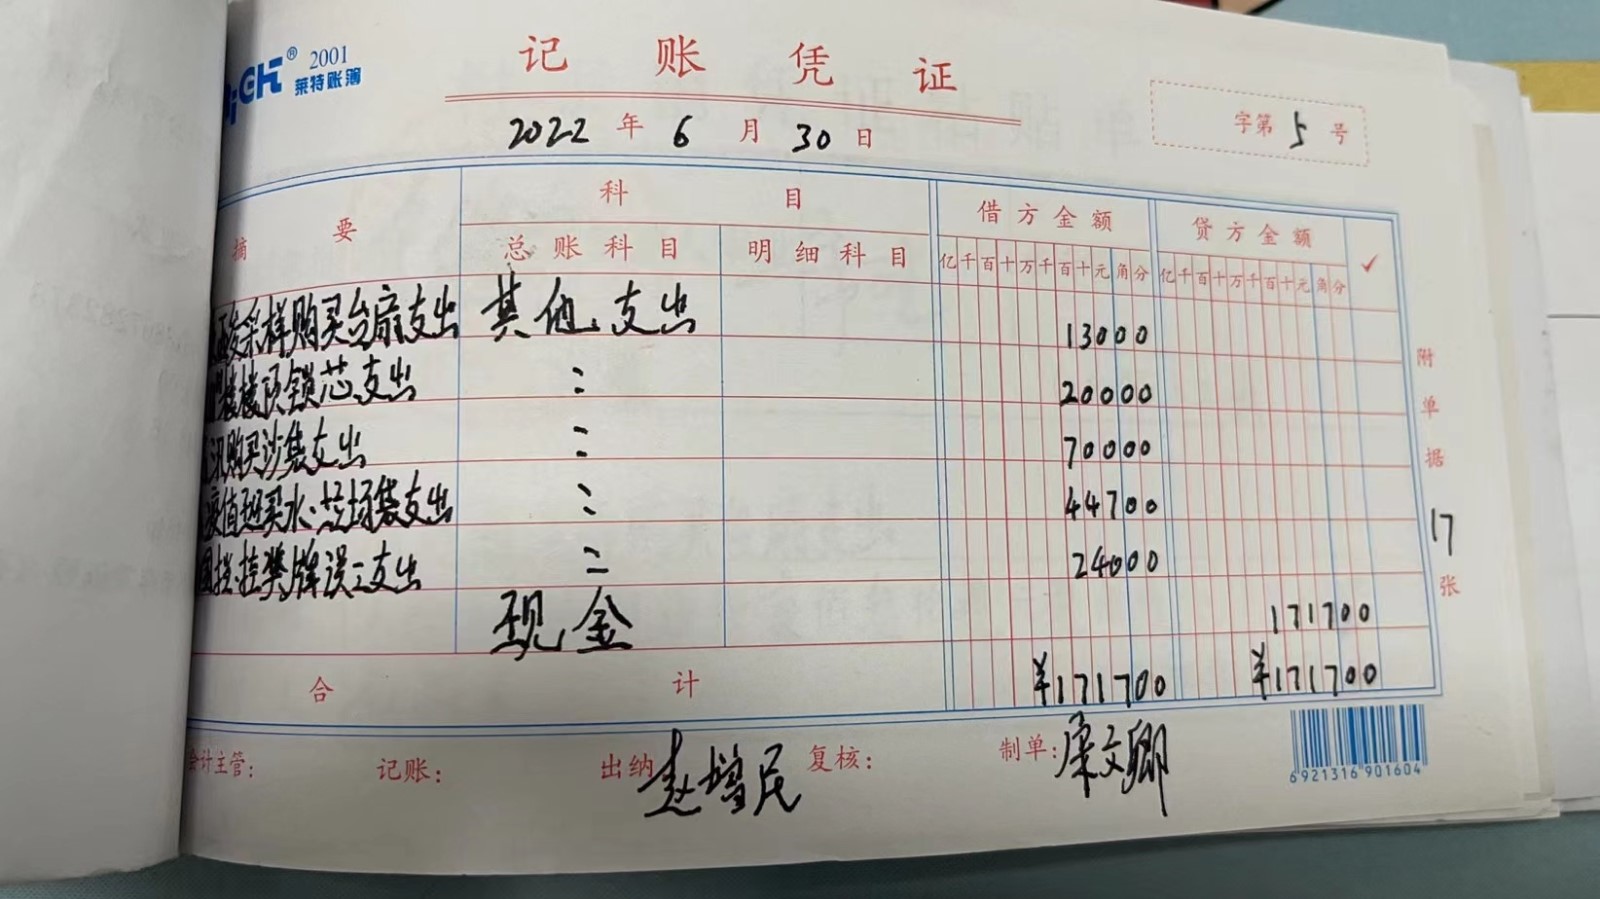 ® 2001
莱特账簿
记账凭证
2022 年 6 月 30 日
字第 5 号
摘要 科目 借方金额 贷方金额 ✓
总账科目 明细科目 亿千百十万千百十元角分 亿千百十万千百十元角分
采样购买台扇支出 其他支出 13000
楼顶锁芯支出 〃 20000
汛购买沙袋支出 〃 70000
值班买水、垃圾袋支出 〃 44700
支出 〃 24000
现金 171700
合计 ¥171700 ¥171700
附单据 17 张
会计主管: 记账: 出纳 赵增民 复核: 制单: 康文卿
6921316901604